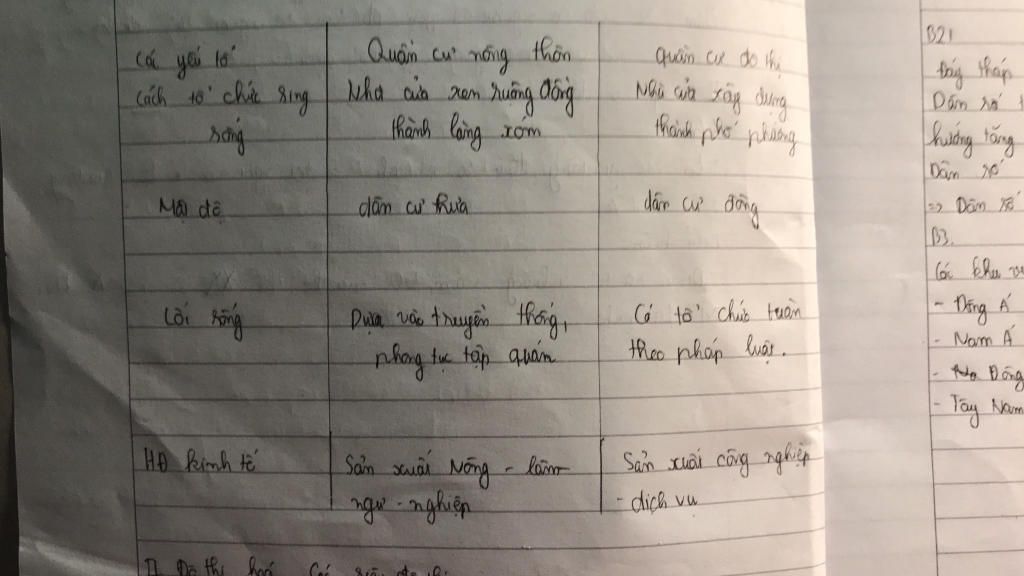 Các yếu tố
Quần cư nông thôn
quần cư đô thị
Cách tổ chức sing
Nhà cửa xen ruộng đồng
Nhà cửa xây dưng
sống
thành làng xóm
thành phố phường
Mật độ
dân cư thưa
dân cư đông
Lối sống
Dựa vào truyền thống,
Có tổ chức tuân
phong tục tập quán
theo pháp luật.
HĐ kinh tế
Sản xuất Nông - lâm
Sản xuất công nghiệp
ngư - nghiệp
- dịch vụ
II. Đô thị hoá
B21
Đáy tháp
Dân số
hướng tăng
Dân số
=> Dân số
B3.
Các khu
- Đông Á
- Nam Á
- Đông
- Tây Nam